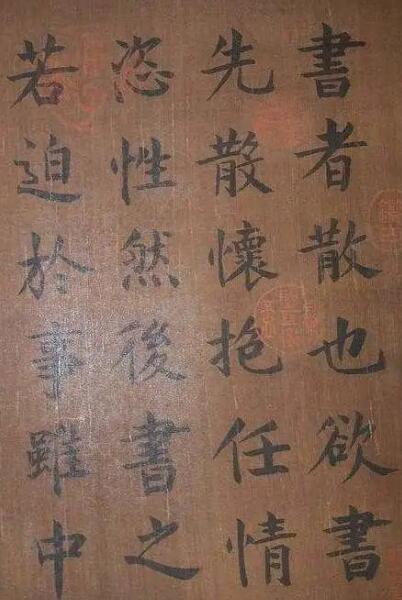 書者散也欲書
先散懷抱任情
恣性然後書之
若迫於事雖中